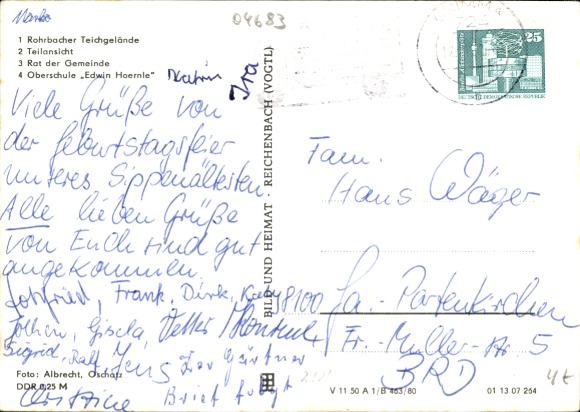 Marko
04683
1 Rohrbacher Teichgelände
2 Teilansicht
3 Rat der Gemeinde
4 Oberschule „Edwin Hoernle"
Katrin
Ira
Viele Grüße von
der Geburtstagsfeier
unseres Sippenältesten.
Alle lieben Grüße
von Euch sind gut
angekommen.
Gottfried, Frank, Dirk,
Jochen, Gisela,
Sigrid, Ralf Jens
Foto: Albrecht, Oschatz
DDR 0,25 M
Christine Brief folgt
BILD UND HEIMAT · REICHENBACH (VOGTL)
25
DEUTSCHE DEMOKRATISCHE REPUBLIK
Fam.
Hans Wäger
8100 Ga.-Partenkirchen
Fr.-Müller-Str 5
BRD
V 11 50 A 1/B 463/80
01 13 07 264
4€